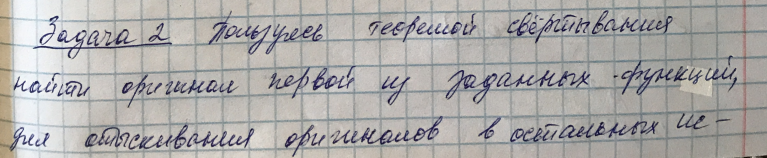 Задача 2 Пользуясь теоремой свёртывания
найти оригинал первой из заданных функций,
для отыскивания оригиналов в остальных ис-